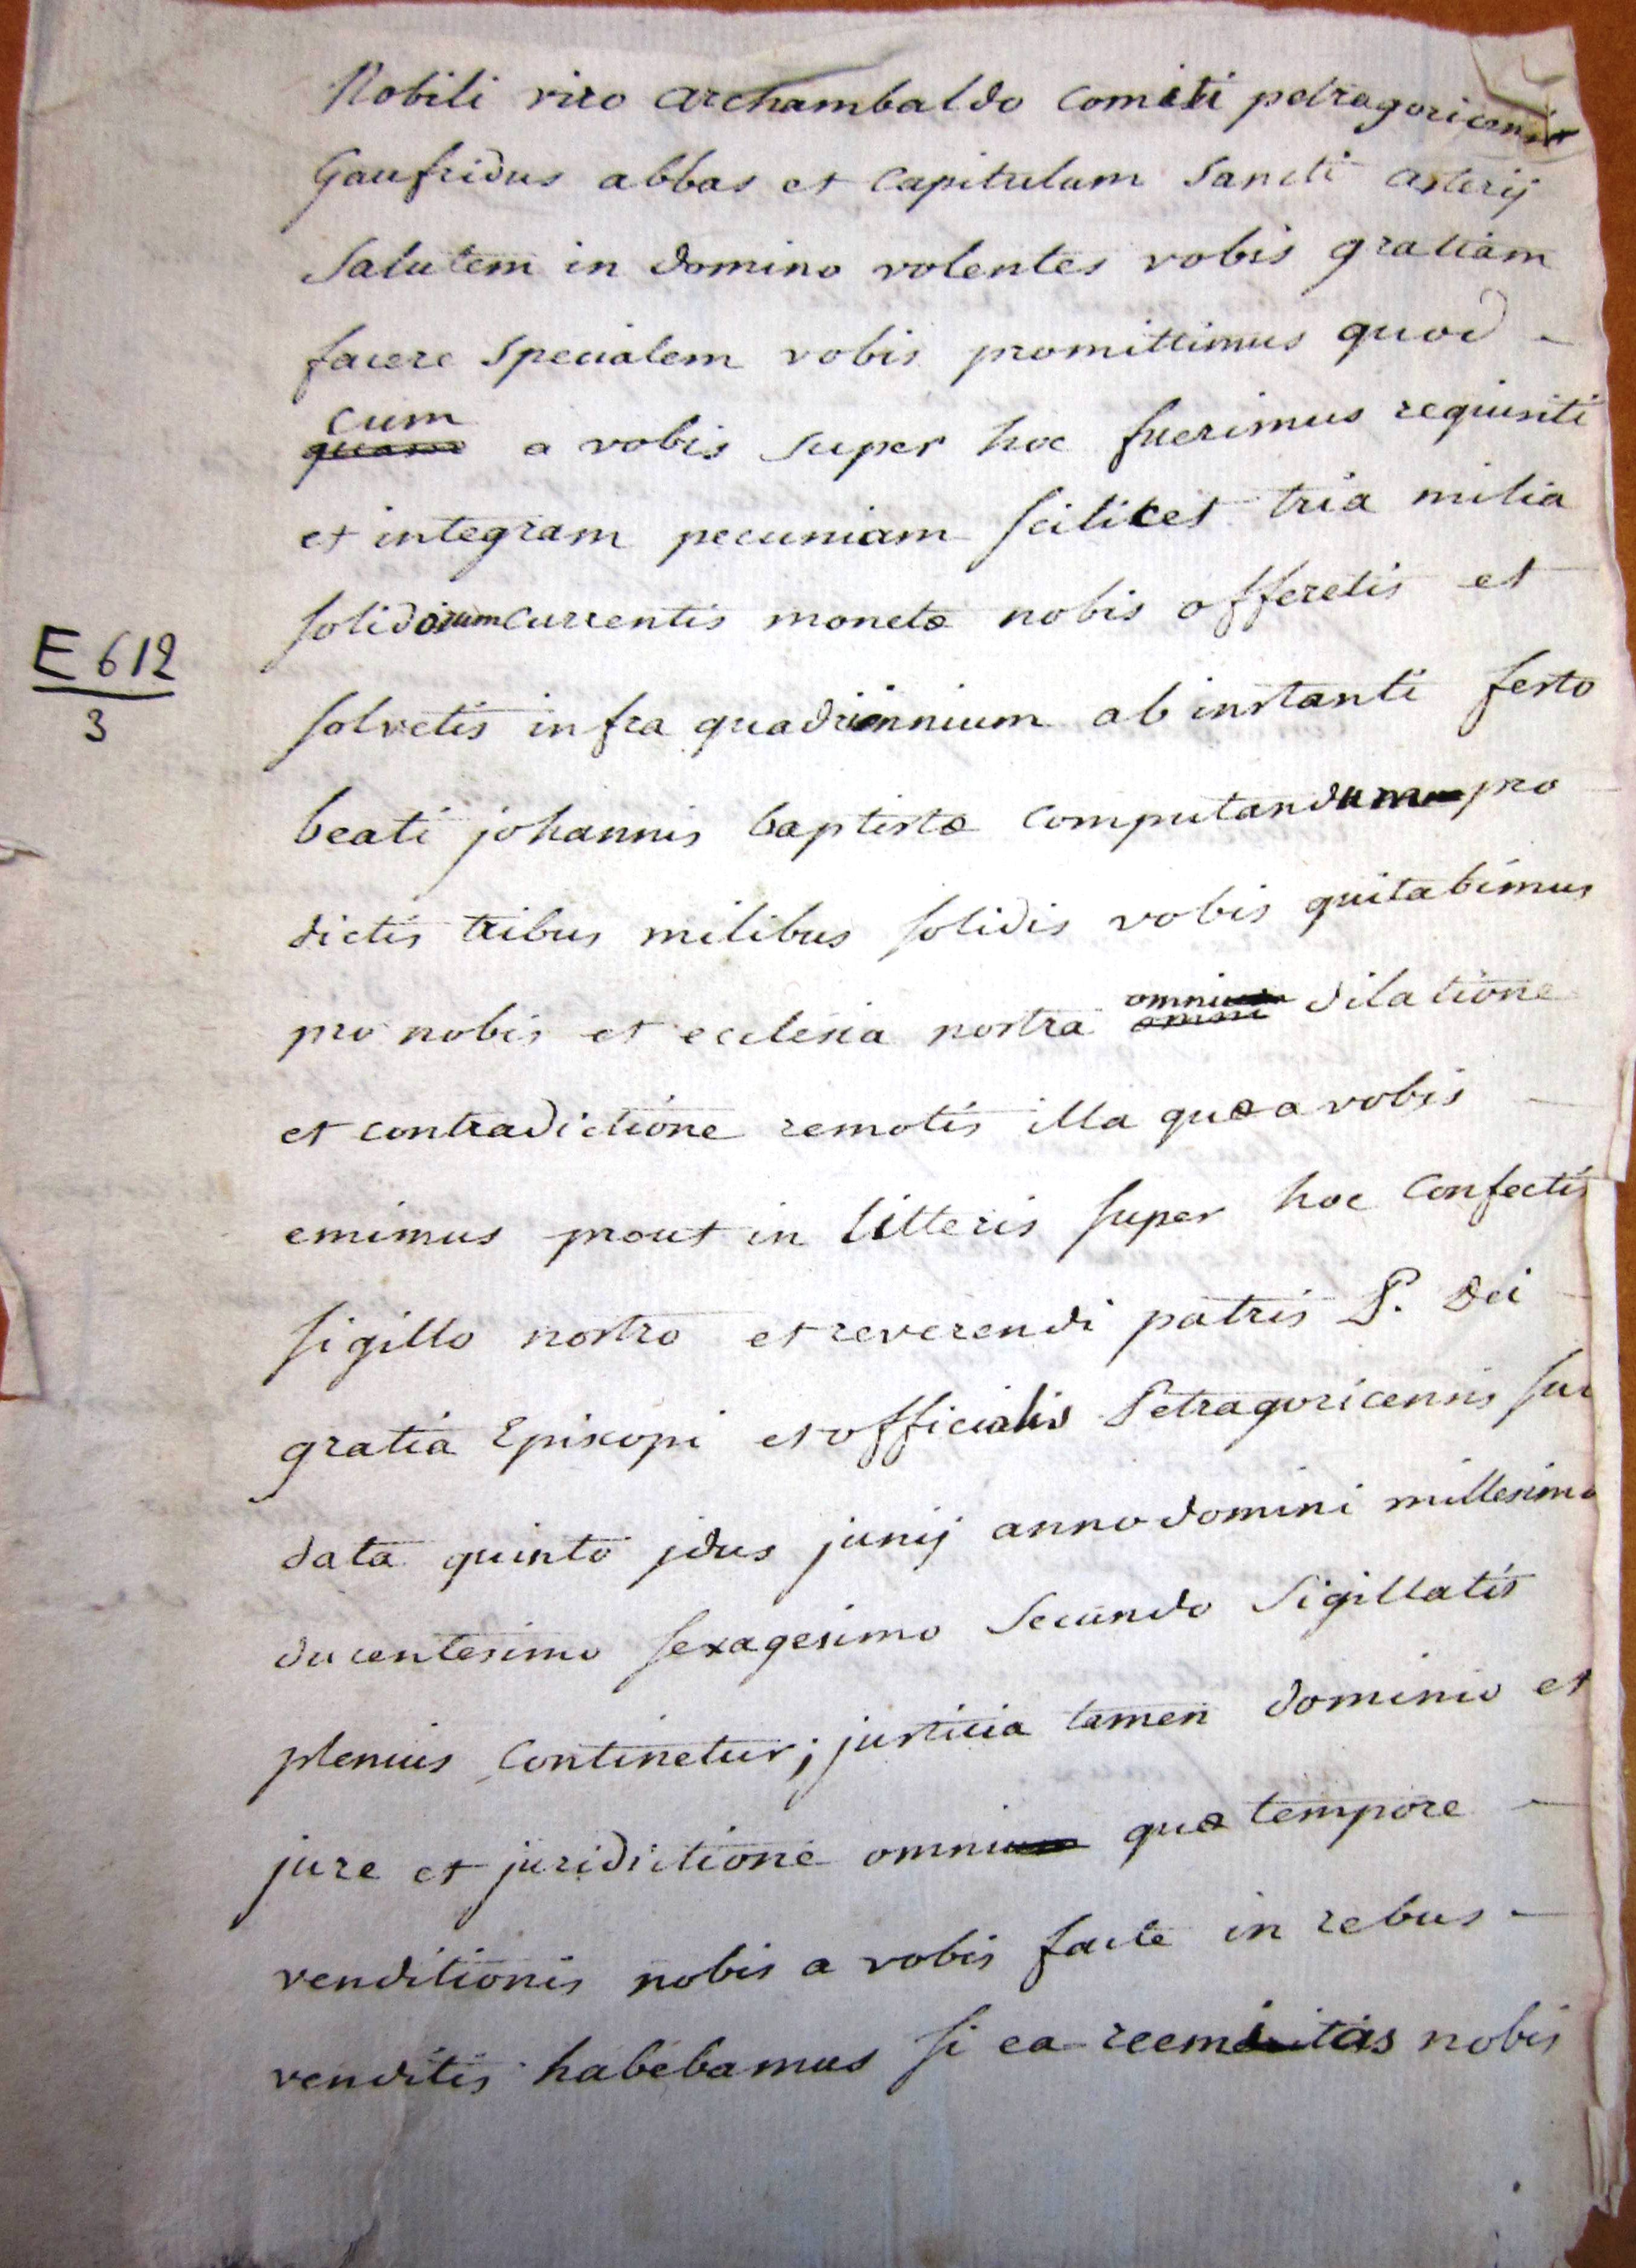 Nobili viro archambaldo comiti petragoricensi
Gaufridus abbas et capitulum Sancti asterij
Salutem in domino volentes vobis gratiam
facere specialem vobis promittimus quod -
cum
quam a vobis super hoc fuerimus requisiti
et integram pecuniam scilicet tria milia
solidorum currentis monetæ nobis offeretis et
solvetis infra quadriennium ab instanti festo
beati johannis baptistæ computandum pro
dictis tribus milibus solidis vobis quitabimus
omni
pro nobis et ecclesia nostra omni dilatione
et contradictione remotis illa quæ a vobis -
emimus prout in litteris super hoc confectis
sigillo nostro et reverendi patris P. dei
gratia Episcopi et officialis Petragoricensis sub
data quinto jdus junij anno domini millesimo
ducentesimo sexagesimo secundo Sigillatis
plenius continetur; justicia tamen dominio et
jure et juridictione omni quæ tempore -
venditionis nobis a vobis facte in rebus -
venditis habebamus si ea nobis
E 612
3